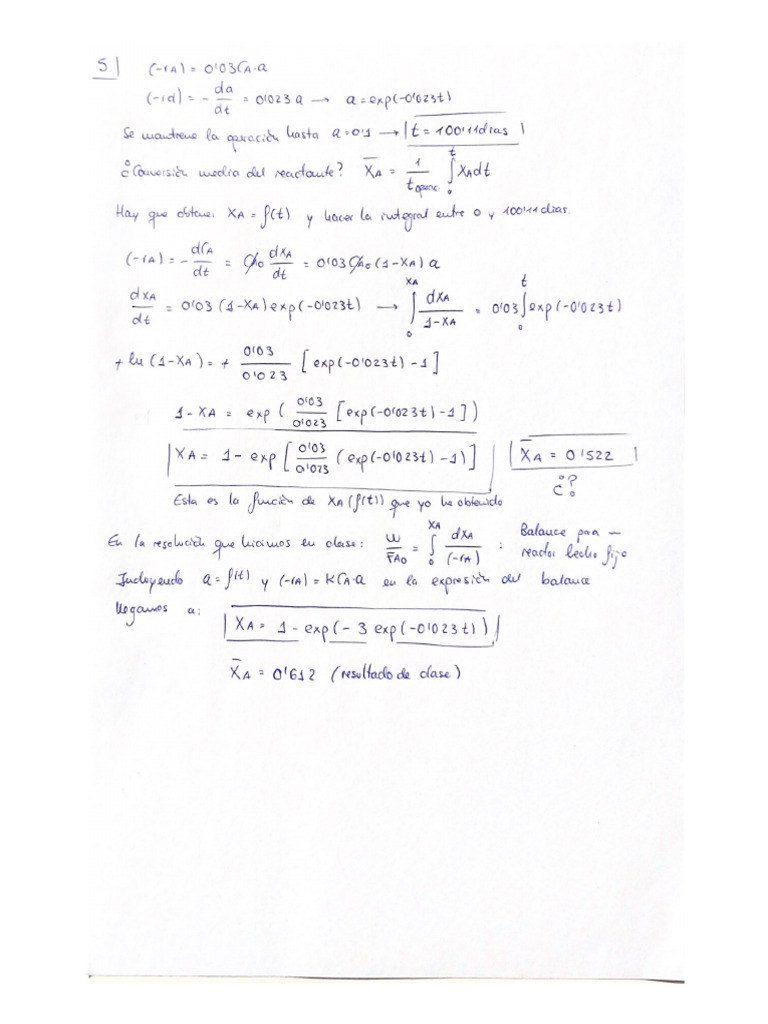 5| (-rA) = 0'03 CA·a
(-rd) = - da/dt = 0'023 a → a = exp(-0'023t)
Se mantiene la operación hasta a = 0'1 → | t = 100'11 dias |
¿Conversión media del reactante? X̄A = 1/toperac. ∫₀ᵗ XA dt
Hay que obtener XA = f(t) y hacer la integral entre 0 y 100'11 dias.
(-rA) = - dCA/dt = CA0 dXA/dt = 0'03 CA0 (1-XA) a
dXA/dt = 0'03 (1-XA) exp(-0'023t) → ∫₀^XA dXA/1-XA = 0'03 ∫₀ᵗ exp(-0'023t)
+ ln (1-XA) = + 0'03/0'023 [exp(-0'023t) -1]
1-XA = exp ( 0'03/0'023 [exp(-0'023t) -1])
| XA = 1 - exp [ 0'03/0'023 (exp(-0'023t) -1)] | | X̄A = 0'522 |
¿?
Esta es la función de XA (f(t)) que yo he obtenido
En la resolución que hicimos en clase: W/FA0 = ∫₀^XA dXA/(-rA) : Balance para un
reactor lecho fijo
Incluyendo a = f(t) y (-rA) = K CA·a en la expresión del balance
llegamos a: | XA = 1 - exp (- 3 exp (-0'023t)) |
X̄A = 0'612 (resultado de clase)